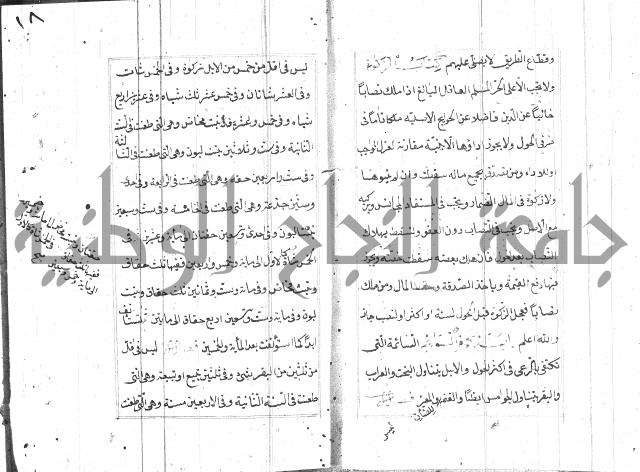 وقطاع الطريق لا يصلى عليهم
ولا تجب الا على الحر المسلم العاقل البالغ اذا ملك نصابا
خاليا عن الدين فاضلا عن حوايجه الاصلية ملكا تاما في
طرفي الحول ولا يجوز اداؤها الا بنية مقارنة لعزل الواجب
او للاداء ومن تصدق بجميع ماله سقطت وان لم ينوها
ولا زكوة في المال الضمار وتجب في المستفاد المجانس ويزكيه
مع الاصل وتجب في النصاب دون العفو وتسقط بهلاك
النصاب بعد الحول فان هلك بعضه سقطت حصته ويجوز
فيها دفع القيمة وياخذ المصدق وسط المال ومن ملك
نصابا فعجل الزكوة قبل الحول لسنة او اكثر او لنصب جاز
والله اعلم السائمة التي
تكتفي بالرعي في اكثر الحول والابل يتناول البخت والعراب
والبقر يتناول الجواميس ايضا والغنم والمعز
١٨
ليس في اقل من خمس من الابل زكوة وفي الخمس شاة
وفي العشر شاتان وفي خمس عشر ثلث شياه وفي عشرين اربع
شياه وفي خمس وعشرين بنت مخاض وهي التي طعنت في السنة
الثانية وفي ست وثلاثين بنت لبون وهي التي طعنت في الثالثة
وفي ست واربعين حقه وهي التي طعنت في الرابعة وفي احدى
وستين جذعة وهي التي طعنت في الخامسة وفي ست وسبعين
بنتا لبون وفي احدى وتسعين حقتان الى ماية وعشرين ثم في
الخمس شاة كالاول الى ماية وخمس واربعين ففيها ثلث حقاق
وبنت مخاض وفي ماية وست وثمانين ثلث حقاق وبنت
لبون وفي ماية وست وتسعين اربع حقاق الى مايتين ثم تستانف
ابدا كما استؤنفت بعد الماية والخمسين ليس في اقل
من ثلثين من البقر شيء وفي ثلثين تبيع او تبيعة وهي التي
طعنت في السنة الثانية وفي الاربعين مسنة وهي التي طعنت
جامعة النجاح الوطنية